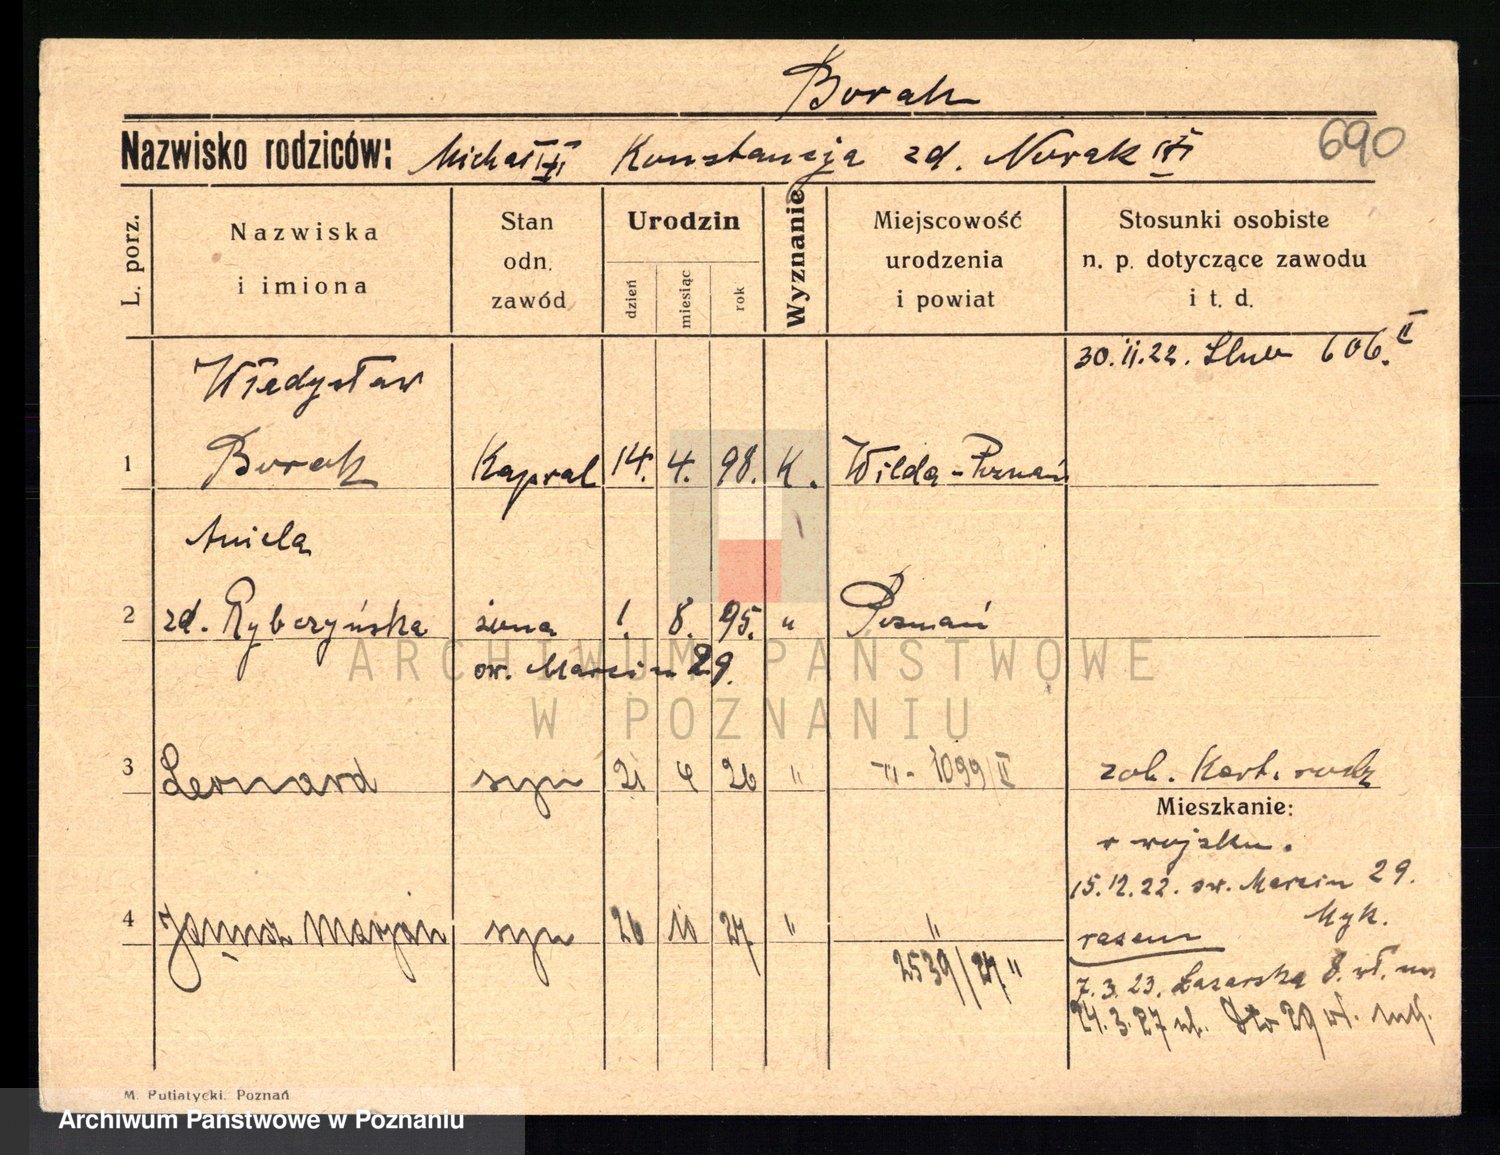 Borak
690
Nazwisko rodziców: Michał Konstancja zd. Nowak
L. porz.
Nazwiska i imiona
Stan odn. zawód
Urodzin
dzień
miesiąc
rok
Wyznanie
Miejscowość urodzenia i powiat
Stosunki osobiste n. p. dotyczące zawodu i t. d.
30.11.22. Ślub 606. II
Władysław
1 Borak Kapral 14. 4. 98. K. Wilda - Poznań
Aniela
2 zd. Rybczyńska żona 1. 8. 95. " Poznań
św. Marcin 29.
3 Leonard syn 21 4 26 " -"- 1099/II
zob. Kart. rodz
Mieszkanie:
w wojsku.
15.12.22. św. Marcin 29.
Myk.
razem
4 Janusz Marjan syn 26 10 27 " "
2539/27. "
7.3.23. Łazarska 8. wł. m
24.3.27
M. Putiatycki. Poznań
ARCHIWUM PAŃSTWOWE
W POZNANIU
Archiwum Państwowe w Poznaniu